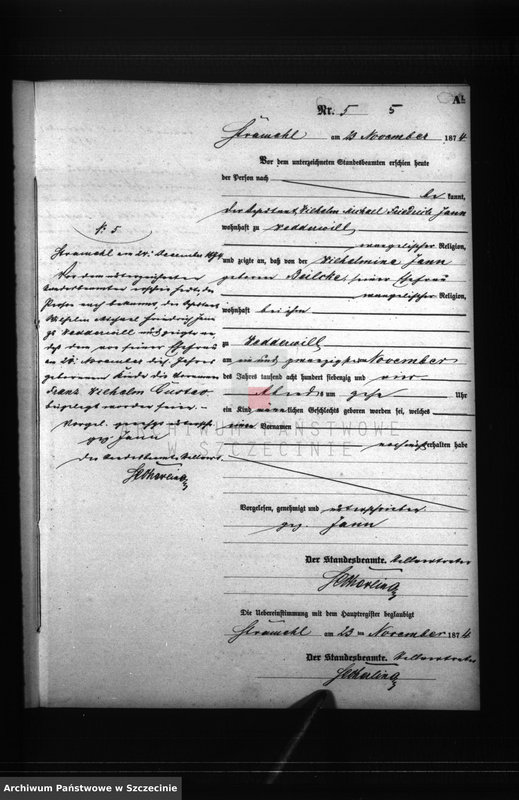 A1.
Nr. 5 5
Strauchl am 23 November 1874
Vor dem unterzeichneten Standesbeamten erschien heute
der Person nach
be kannt,
der Wilhelm Michael Friedrich Jann
wohnhaft zu Vedderwill
evangelischer Religion,
und zeigte an, daß von der Wilhelmina Jann
geborenen Beilcke, seiner Ehefrau
evangelischer Religion,
wohnhaft bei ihm
zu Vedderwill
am ein und zwanzigsten November
des Jahres tausend acht hundert siebenzig und vier
Abends um Uhr
ein Kind männlichen Geschlechts geboren worden sei, welches
einen Vornamen
noch nicht erhalten habe
Vorgelesen, genehmigt und unterschrieben
gez. Jann
Der Standesbeamte. Stellvertreter
Die Uebereinstimmung mit dem Hauptregister beglaubigt
am 23 ten November 1874
Der Standesbeamte. Stellvertreter
№ 5
am December 1874
Vor dem unterzeichneten
Standesbeamten erschien heute, der
Person nach bekannt, der
Wilhelm Michael Friedrich Jann
zu Vedderwill und zeigte an
daß dem von seiner Ehefrau
am 21. November dieses Jahres
geborenen Kinde die Vornamen
Franz Wilhelm Gustav
beigelegt worden seien.
Vorgel. genehmigt
gez Jann
Der Standesbeamte. Stellvert.
ARCHIWUM PAŃSTWOWE
W SZCZECINIE
Archiwum Państwowe w Szczecinie